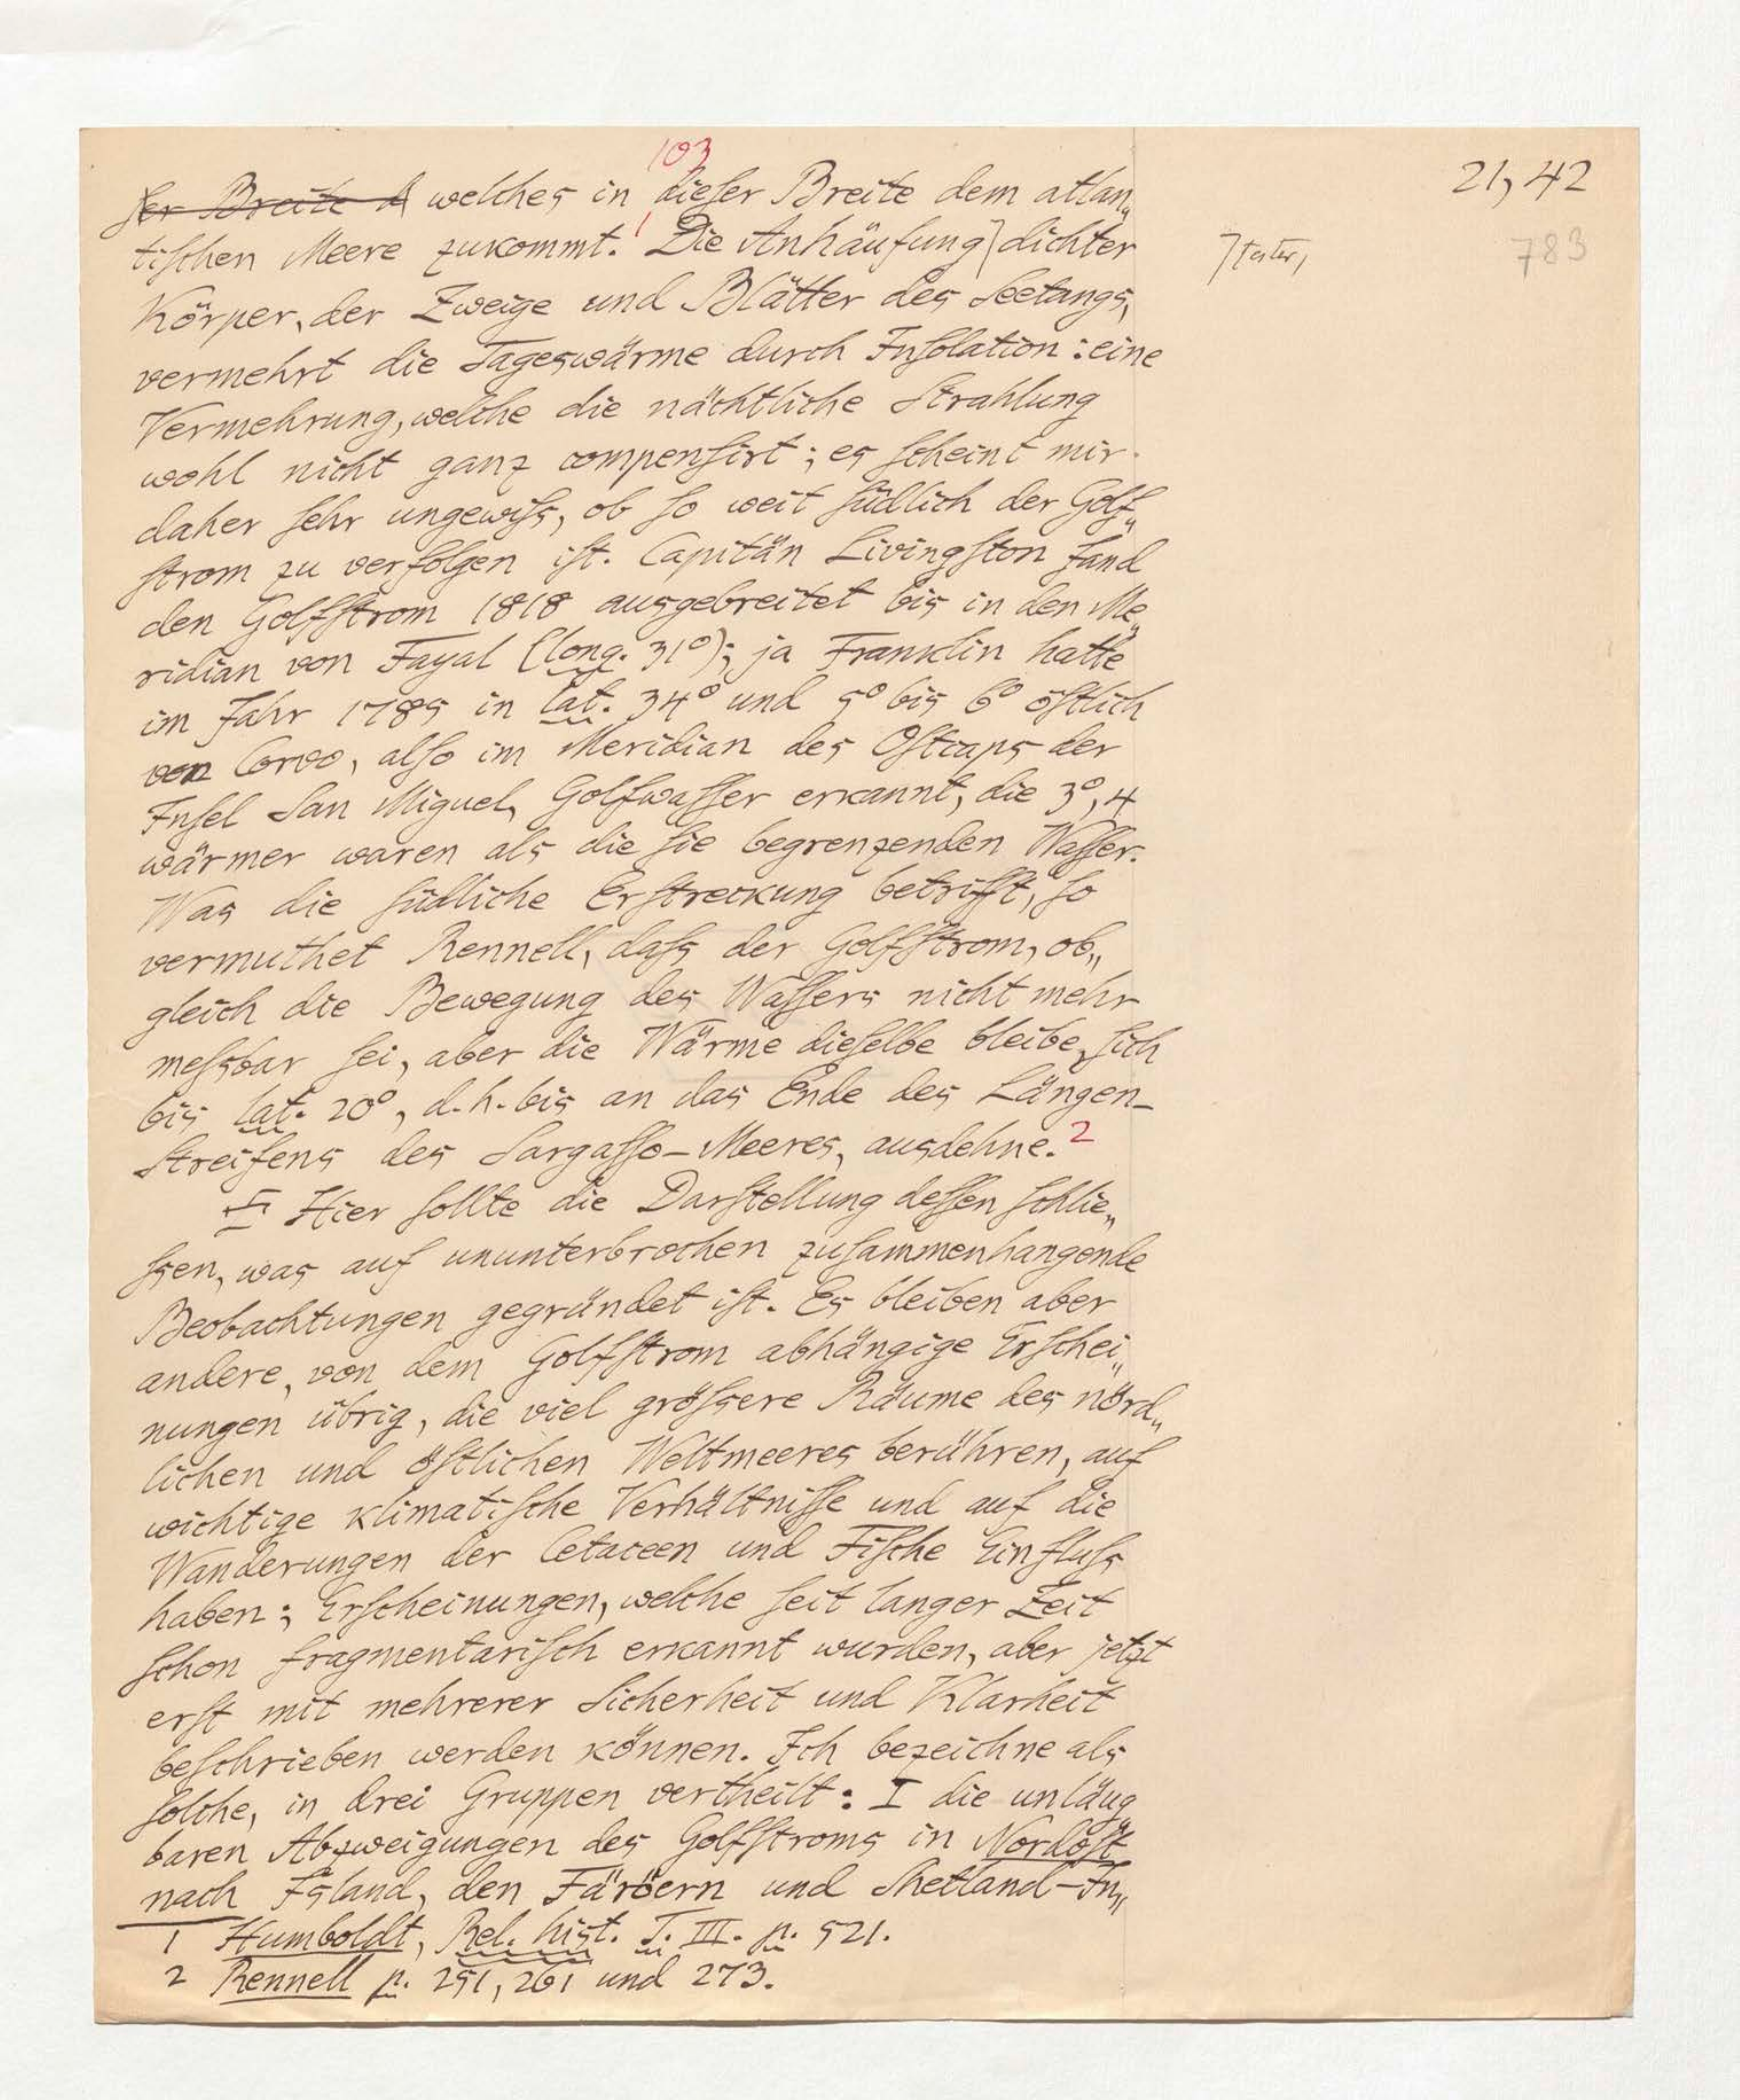 103
21, 42
783
ser Breite d welches in dieser Breite dem atlan„
tischen Meere zukommt.1 Die Anhäufung dichter
Körper, der Zweige und Blätter des Seetangs,
vermehrt die Tageswärme durch Insolation: eine
Vermehrung, welche die nächtliche Strahlung
wohl nicht ganz compensirt; es scheint mir
daher sehr ungewiss, ob so weit südlich der Golf„
strom zu verfolgen ist. Capitän Livingston fand
den Golfstrom 1818 ausgebreitet bis in den Me„
ridian von Fayal (long. 31°); ja Franklin hatte
im Jahr 1785 in lat. 34° und 5° bis 6° östlich
von Corvo, also im Meridian des Ostcaps der
Insel San Miguel, Golfwasser erkannt, die 3°,4
wärmer waren als die sie begrenzenden Wasser.
Was die südliche Erstreckung betrifft, so
vermuthet Rennell, dass der Golfstrom, ob„
gleich die Bewegung des Wassers nicht mehr
messbar sei, aber die Wärme dieselbe bleibe, sich
bis lat. 20°, d. h. bis an das Ende des Längen-
Streifens des Sargasso-Meeres, ausdehne.2
Hier sollte die Darstellung dessen schlie„
ssen, was auf ununterbrochen zusammenhangende
Beobachtungen gegründet ist. Es bleiben aber
andere, von dem Golfstrom abhängige Erschei„
nungen übrig, die viel grössere Räume des nörd„
lichen und östlichen Weltmeeres berühren, auf
wichtige klimatische Verhältnisse und auf die
Wanderungen der Cetaceen und Fische Einfluss
haben; Erscheinungen, welche seit langer Zeit
schon fragmentarisch erkannt wurden, aber jetzt
erst mit mehrerer Sicherheit und Klarheit
beschrieben werden können. Ich bezeichne als
solche, in drei Gruppen vertheilt: I die unläug„
baren Abzweigungen des Golfstroms in Nordost
nach Island, den Färöern und Shetland-In„
1 Humboldt, Rel. hist. T. III. p. 521.
2 Rennell p. 251, 261 und 273.